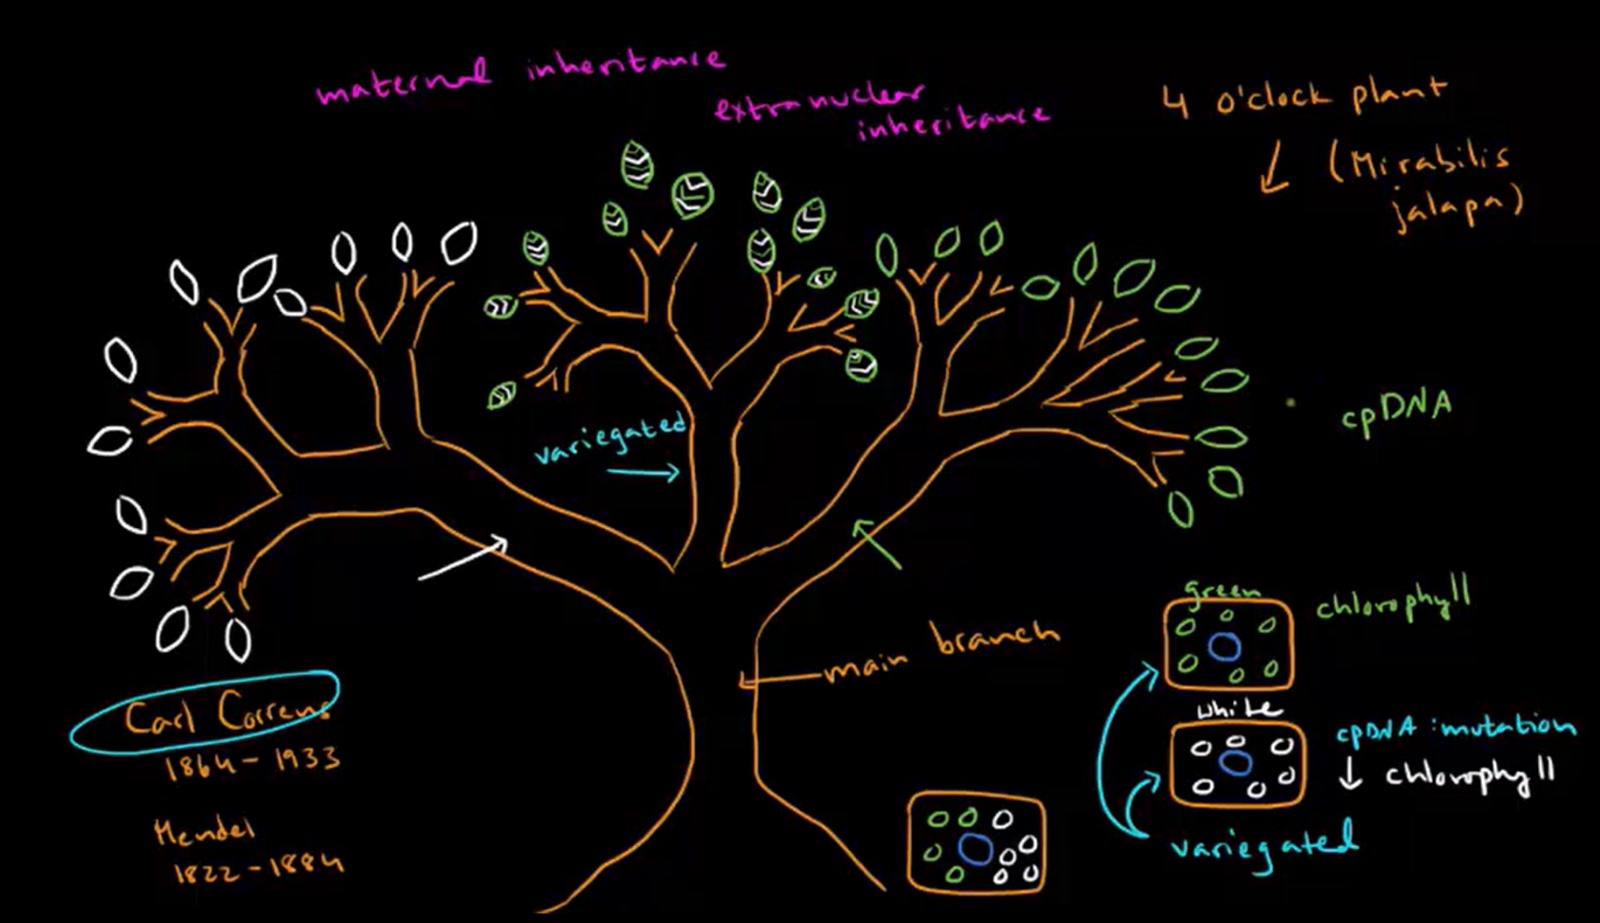 maternal inheritance
extranuclear
inheritance
4 o'clock plant
(Mirabilis
jalapa)
variegated
cpDNA
main branch
green
chlorophyll
white
cpDNA : mutation
↓ chlorophyll
variegated
Carl Correns
1864 - 1933
Mendel
1822 - 1884